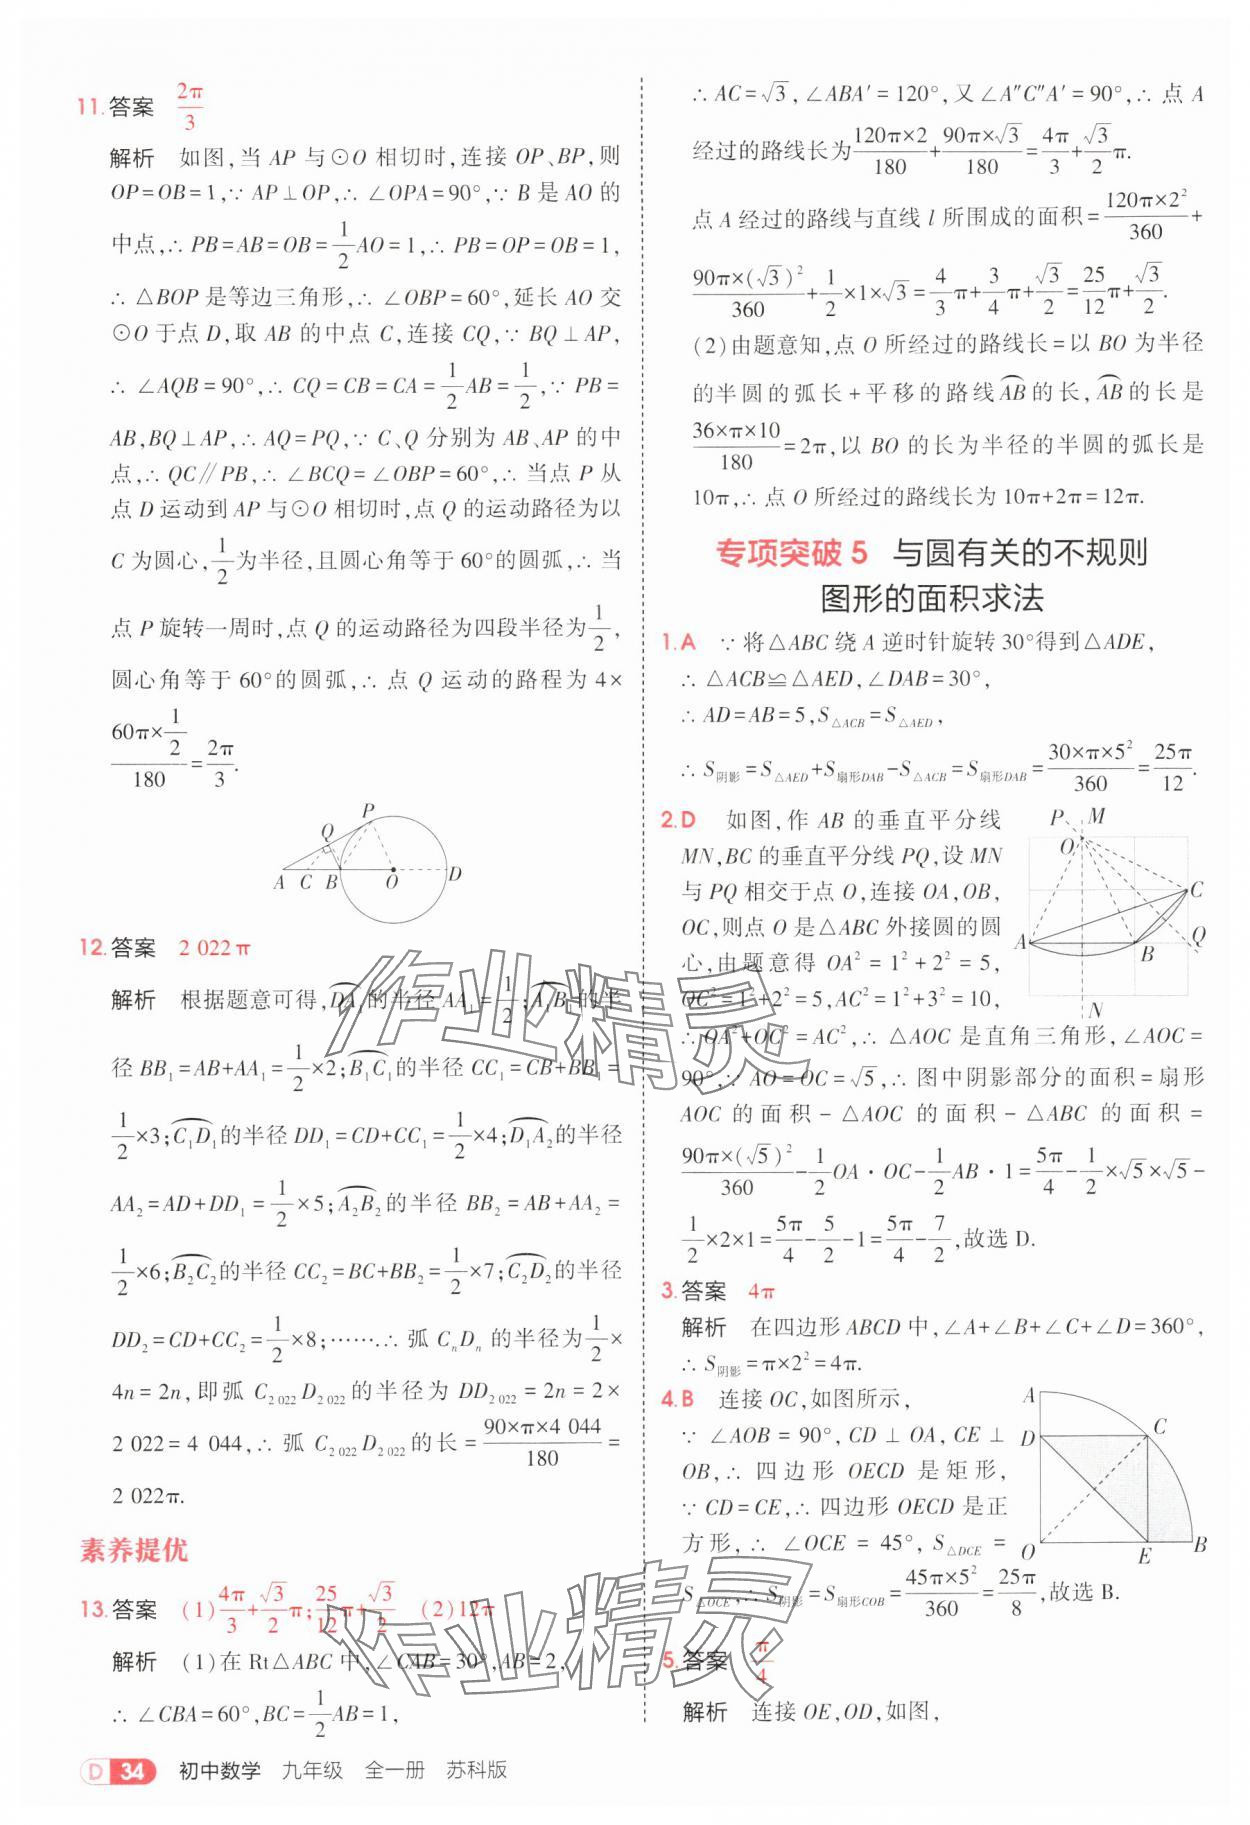 11.答案 2π/3
解析 如图,当 AP 与⊙O 相切时,连接 OP、BP,则
OP=OB=1,∵ AP⊥OP,∴ ∠OPA=90°,∵ B 是 AO 的
中点,∴ PB=AB=OB=1/2AO=1,∴ PB=OP=OB=1,
∴ △BOP 是等边三角形,∴ ∠OBP=60°,延长 AO 交
⊙O 于点 D,取 AB 的中点 C,连接 CQ,∵ BQ⊥AP,
∴ ∠AQB=90°,∴ CQ=CB=CA=1/2AB=1/2,∵ PB=
AB,BQ⊥AP,∴ AQ=PQ,∵ C、Q 分别为 AB、AP 的中
点,∴ QC∥PB,∴ ∠BCQ=∠OBP=60°,∴ 当点 P 从
点 D 运动到 AP 与⊙O 相切时,点 Q 的运动路径为以
C 为圆心,1/2为半径,且圆心角等于60°的圆弧,∴ 当
点 P 旋转一周时,点 Q 的运动路径为四段半径为1/2,
圆心角等于60°的圆弧,∴ 点 Q 运动的路程为 4×
(60π×1/2)/180=2π/3.
P
Q
A C B O D
12.答案 2 022π
解析 根据题意可得,DA₁的半径 AA₁=1/2;A₁B₁的半
径 BB₁=AB+AA₁=1/2×2;B₁C₁的半径 CC₁=CB+BB₁=
1/2×3;C₁D₁的半径 DD₁=CD+CC₁=1/2×4;D₁A₂的半径
AA₂=AD+DD₁=1/2×5;A₂B₂的半径 BB₂=AB+AA₂=
1/2×6;B₂C₂的半径 CC₂=BC+BB₂=1/2×7;C₂D₂的半径
DD₂=CD+CC₂=1/2×8;……∴ 弧 CₙDₙ 的半径为1/2×
4n=2n,即弧 C₂ ₀₂₂D₂ ₀₂₂的半径为 DD₂ ₀₂₂=2n=2×
2 022=4 044,∴ 弧 C₂ ₀₂₂D₂ ₀₂₂的长=(90×π×4 044)/180=
2 022π.
素养提优
13.答案 (1)4π/3+√3/2π;25/12π+√3/2 (2)12π
解析 (1)在 Rt△ABC 中,∠CAB=30°,AB=2,
∴ ∠CBA=60°,BC=1/2AB=1,
∴ AC=√3,∠ABA′=120°,又∠A″C″A′=90°,∴ 点 A
经过的路线长为(120π×2)/180+(90π×√3)/180=4π/3+√3/2π.
点 A 经过的路线与直线 l 所围成的面积=(120π×2²)/360+
(90π×(√3)²)/360+1/2×1×√3=4/3π+3/4π+√3/2=25/12π+√3/2.
(2)由题意知,点 O 所经过的路线长=以 BO 为半径
的半圆的弧长+平移的路线AB的长,AB的长是
(36×π×10)/180=2π,以 BO 的长为半径的半圆的弧长是
10π,∴ 点 O 所经过的路线长为 10π+2π=12π.
专项突破 5 与圆有关的不规则
图形的面积求法
1.A ∵ 将△ABC 绕 A 逆时针旋转 30°得到△ADE,
∴ △ACB≌△AED,∠DAB=30°,
∴ AD=AB=5,S△ACB=S△AED,
∴ S阴影=S△AED+S扇形DAB−S△ACB=S扇形DAB=(30×π×5²)/360=25π/12.
2.D 如图,作 AB 的垂直平分线
MN,BC 的垂直平分线 PQ,设 MN
与 PQ 相交于点 O,连接 OA,OB,
OC,则点 O 是△ABC 外接圆的圆
心,由题意得 OA²=1²+2²=5,
OC²=1²+2²=5,AC²=1²+3²=10,
∴ OA²+OC²=AC²,∴ △AOC 是直角三角形,∠AOC=
90°,∵ AO=OC=√5,∴ 图中阴影部分的面积=扇形
AOC 的面积−△AOC 的面积−△ABC 的面积=
(90π×(√5)²)/360−1/2OA·OC−1/2AB·1=5π/4−1/2×√5×√5−
1/2×2×1=5π/4−5/2−1=5π/4−7/2,故选 D.
P M
O
C
A B Q
N
3.答案 4π
解析 在四边形 ABCD 中,∠A+∠B+∠C+∠D=360°,
∴ S阴影=π×2²=4π.
4.B 连接 OC,如图所示,
∵ ∠AOB=90°,CD⊥OA,CE⊥
OB,∴ 四边形 OECD 是矩形,
∵ CD=CE,∴ 四边形 OECD 是正
方形,∴ ∠OCE=45°,S△DCE=
S△OCE,∴ S阴影=S扇形COB=(45π×5²)/360=25π/8,故选 B.
A
D C
O E B
5.答案 π/4
解析 连接 OE,OD,如图,
作业精灵
作业精灵
D 34 初中数学 九年级 全一册 苏科版